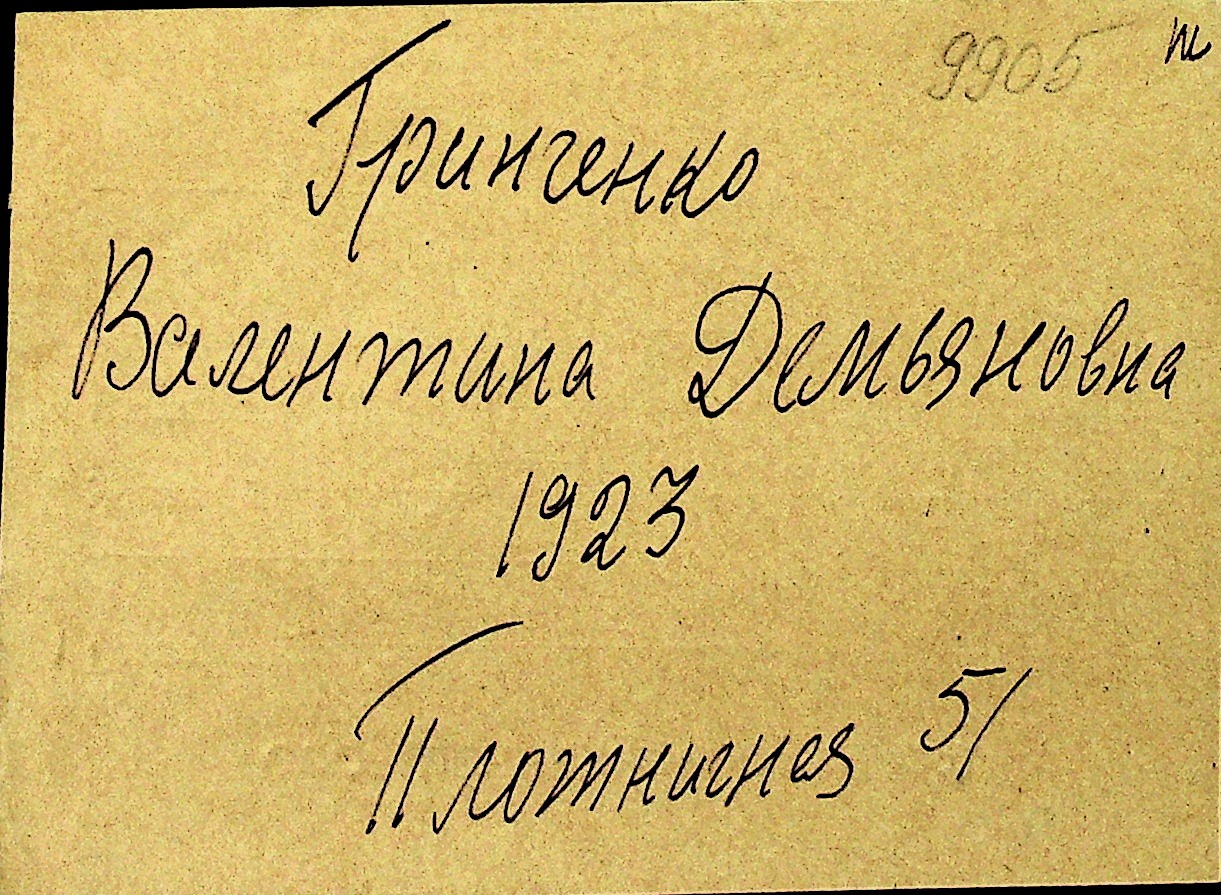 9905
Гринченко
Валентина Демьяновна
1923
Плотничная 51